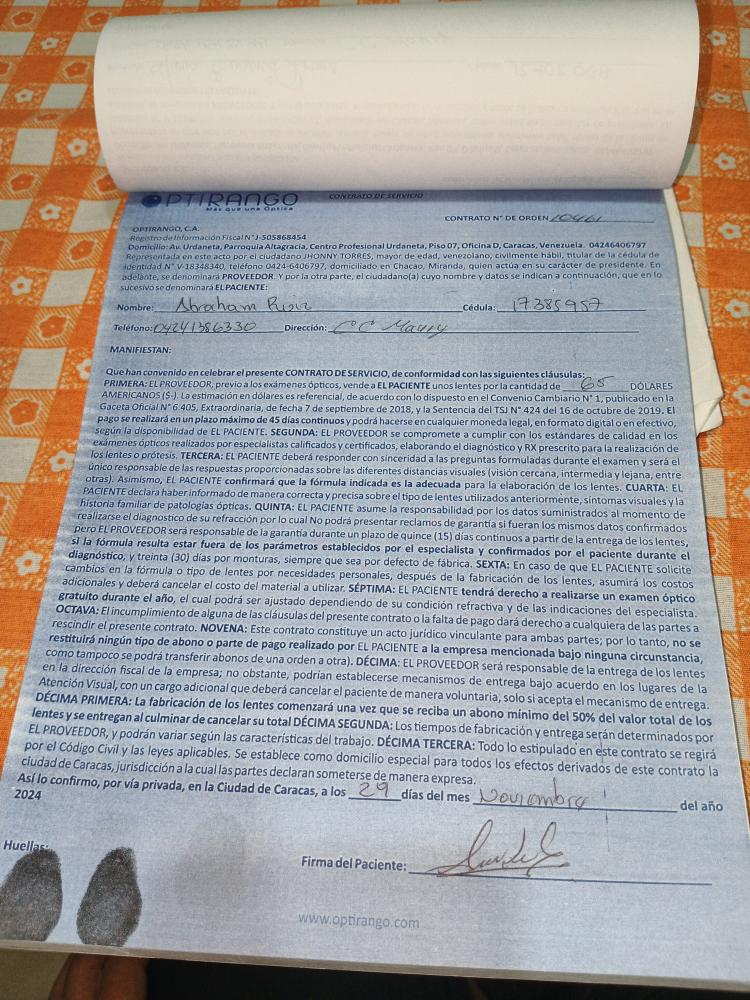 OPTIRANGO
Más que una Óptica
CONTRATO DE SERVICIO
CONTRATO N° DE ORDEN 10461
OPTIRANGO, C.A.
Registro de Información Fiscal N° J-505868454
Domicilio: Av. Urdaneta, Parroquia Altagracia, Centro Profesional Urdaneta, Piso 07, Oficina D, Caracas, Venezuela. 04246406797
Representada en este acto por el ciudadano JHONNY TORRES, mayor de edad, venezolano, civilmente hábil, titular de la cédula de
identidad N° V-18348340, teléfono 0424-6406797, domiciliado en Chacao, Miranda, quien actúa en su carácter de presidente. En
adelante, se denominará PROVEEDOR. Y por la otra parte, el ciudadano(a) cuyo nombre y datos se indican a continuación, que en lo
sucesivo se denominará EL PACIENTE:
Nombre: Abraham Ruiz Cédula: 17385957
Teléfono: 04241386330 Dirección: CC Maury
MANIFIESTAN:
Que han convenido en celebrar el presente CONTRATO DE SERVICIO, de conformidad con las siguientes cláusulas:
PRIMERA: EL PROVEEDOR, previo a los exámenes ópticos, vende a EL PACIENTE unos lentes por la cantidad de 65 DÓLARES
AMERICANOS ($-). La estimación en dólares es referencial, de acuerdo con lo dispuesto en el Convenio Cambiario N° 1, publicado en la
Gaceta Oficial N° 6.405, Extraordinaria, de fecha 7 de septiembre de 2018, y la Sentencia del TSJ N° 424 del 16 de octubre de 2019. El
pago se realizará en un plazo máximo de 45 días continuos y podrá hacerse en cualquier moneda legal, en formato digital o en efectivo,
según la disponibilidad de EL PACIENTE. SEGUNDA: EL PROVEEDOR se compromete a cumplir con los estándares de calidad en los
exámenes ópticos realizados por especialistas calificados y certificados, elaborando el diagnóstico y RX prescrito para la realización de
los lentes o prótesis. TERCERA: EL PACIENTE deberá responder con sinceridad a las preguntas formuladas durante el examen y será el
único responsable de las respuestas proporcionadas sobre las diferentes distancias visuales (visión cercana, intermedia y lejana, entre
otras). Asimismo, EL PACIENTE confirmará que la fórmula indicada es la adecuada para la elaboración de los lentes. CUARTA: EL
PACIENTE declara haber informado de manera correcta y precisa sobre el tipo de lentes utilizados anteriormente, síntomas visuales y la
historia familiar de patologías ópticas. QUINTA: EL PACIENTE asume la responsabilidad por los datos suministrados al momento de
realizarse el diagnostico de su refracción por lo cual No podrá presentar reclamos de garantía si fueran los mismos datos confirmados
pero EL PROVEEDOR será responsable de la garantía durante un plazo de quince (15) días continuos a partir de la entrega de los lentes,
si la fórmula resulta estar fuera de los parámetros establecidos por el especialista y confirmados por el paciente durante el
diagnóstico, y treinta (30) días por monturas, siempre que sea por defecto de fábrica. SEXTA: En caso de que EL PACIENTE solicite
cambios en la fórmula o tipo de lentes por necesidades personales, después de la fabricación de los lentes, asumirá los costos
adicionales y deberá cancelar el costo del material a utilizar. SÉPTIMA: EL PACIENTE tendrá derecho a realizarse un examen óptico
gratuito durante el año, el cual podrá ser ajustado dependiendo de su condición refractiva y de las indicaciones del especialista.
OCTAVA: El incumplimiento de alguna de las cláusulas del presente contrato o la falta de pago dará derecho a cualquiera de las partes a
rescindir el presente contrato. NOVENA: Este contrato constituye un acto jurídico vinculante para ambas partes; por lo tanto, no se
restituirá ningún tipo de abono o parte de pago realizado por EL PACIENTE a la empresa mencionada bajo ninguna circunstancia,
como tampoco se podrá transferir abonos de una orden a otra). DÉCIMA: EL PROVEEDOR será responsable de la entrega de los lentes
en la dirección fiscal de la empresa; no obstante, podrían establecerse mecanismos de entrega bajo acuerdo en los lugares de la
Atención Visual, con un cargo adicional que deberá cancelar el paciente de manera voluntaria, solo si acepta el mecanismo de entrega.
DÉCIMA PRIMERA: La fabricación de los lentes comenzará una vez que se reciba un abono mínimo del 50% del valor total de los
lentes y se entregan al culminar de cancelar su total DÉCIMA SEGUNDA: Los tiempos de fabricación y entrega serán determinados por
EL PROVEEDOR, y podrán variar según las características del trabajo. DÉCIMA TERCERA: Todo lo estipulado en este contrato se regirá
por el Código Civil y las leyes aplicables. Se establece como domicilio especial para todos los efectos derivados de este contrato la
ciudad de Caracas, jurisdicción a la cual las partes declaran someterse de manera expresa.
Así lo confirmo, por vía privada, en la Ciudad de Caracas, a los 29 días del mes Noviembre del año
2024
Huellas:
Firma del Paciente:
www.optirango.com